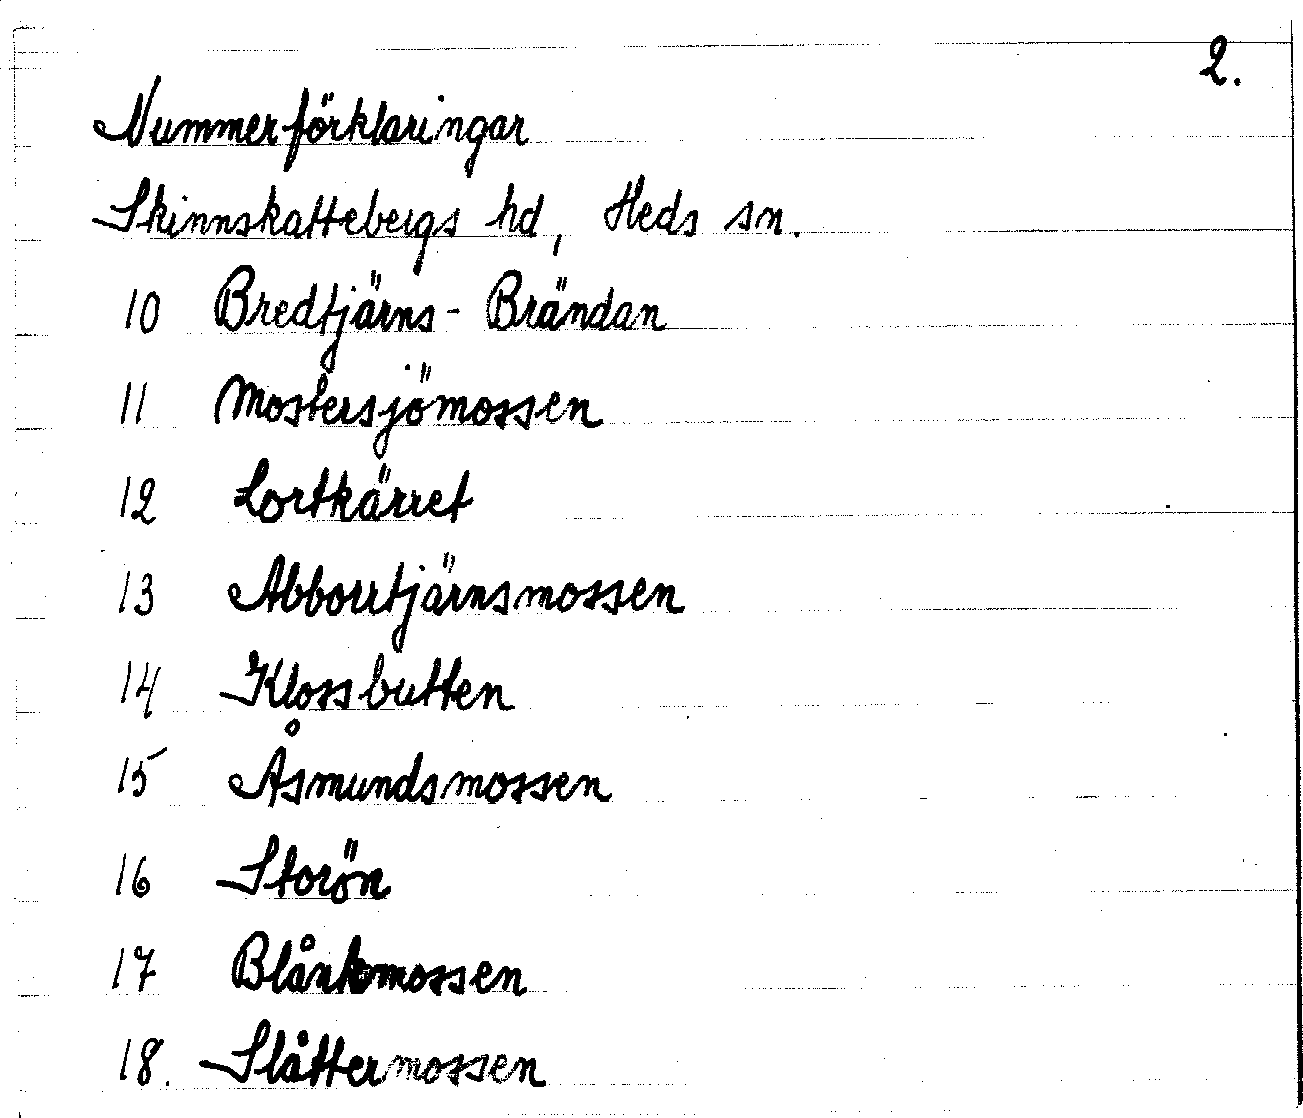 2.
Nummerförklaringar
Skinnskattebergs hd, Heds sn.
10 Bredtjärns-Brändan
11 Mostersjömossen
12 Lortkärret
13 Abborrtjärnsmossen
14 Klossbutten
15 Åsmundsmossen
16 Storön
17 Blånkmossen
18. Slåttermossen